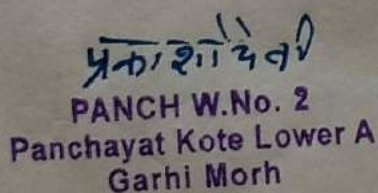 प्रकाशो देवी
PANCH W.No. 2
Panchayat Kote Lower A
Garhi Morh